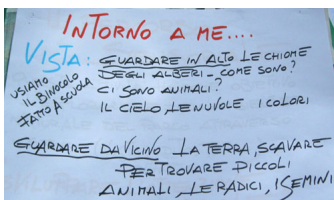 INTORNO A ME....
VISTA: GUARDARE IN ALTO LE CHIOME
DEGLI ALBERI - COME SONO?
CI SONO ANIMALI?
IL CIELO, LE NUVOLE I COLORI
USIAMO
IL BINOCOLO
FATTO A SCUOLA
GUARDARE DA VICINO LA TERRA, SCAVARE
PER TROVARE PICCOLI
ANIMALI, LE RADICI, I SEMINI